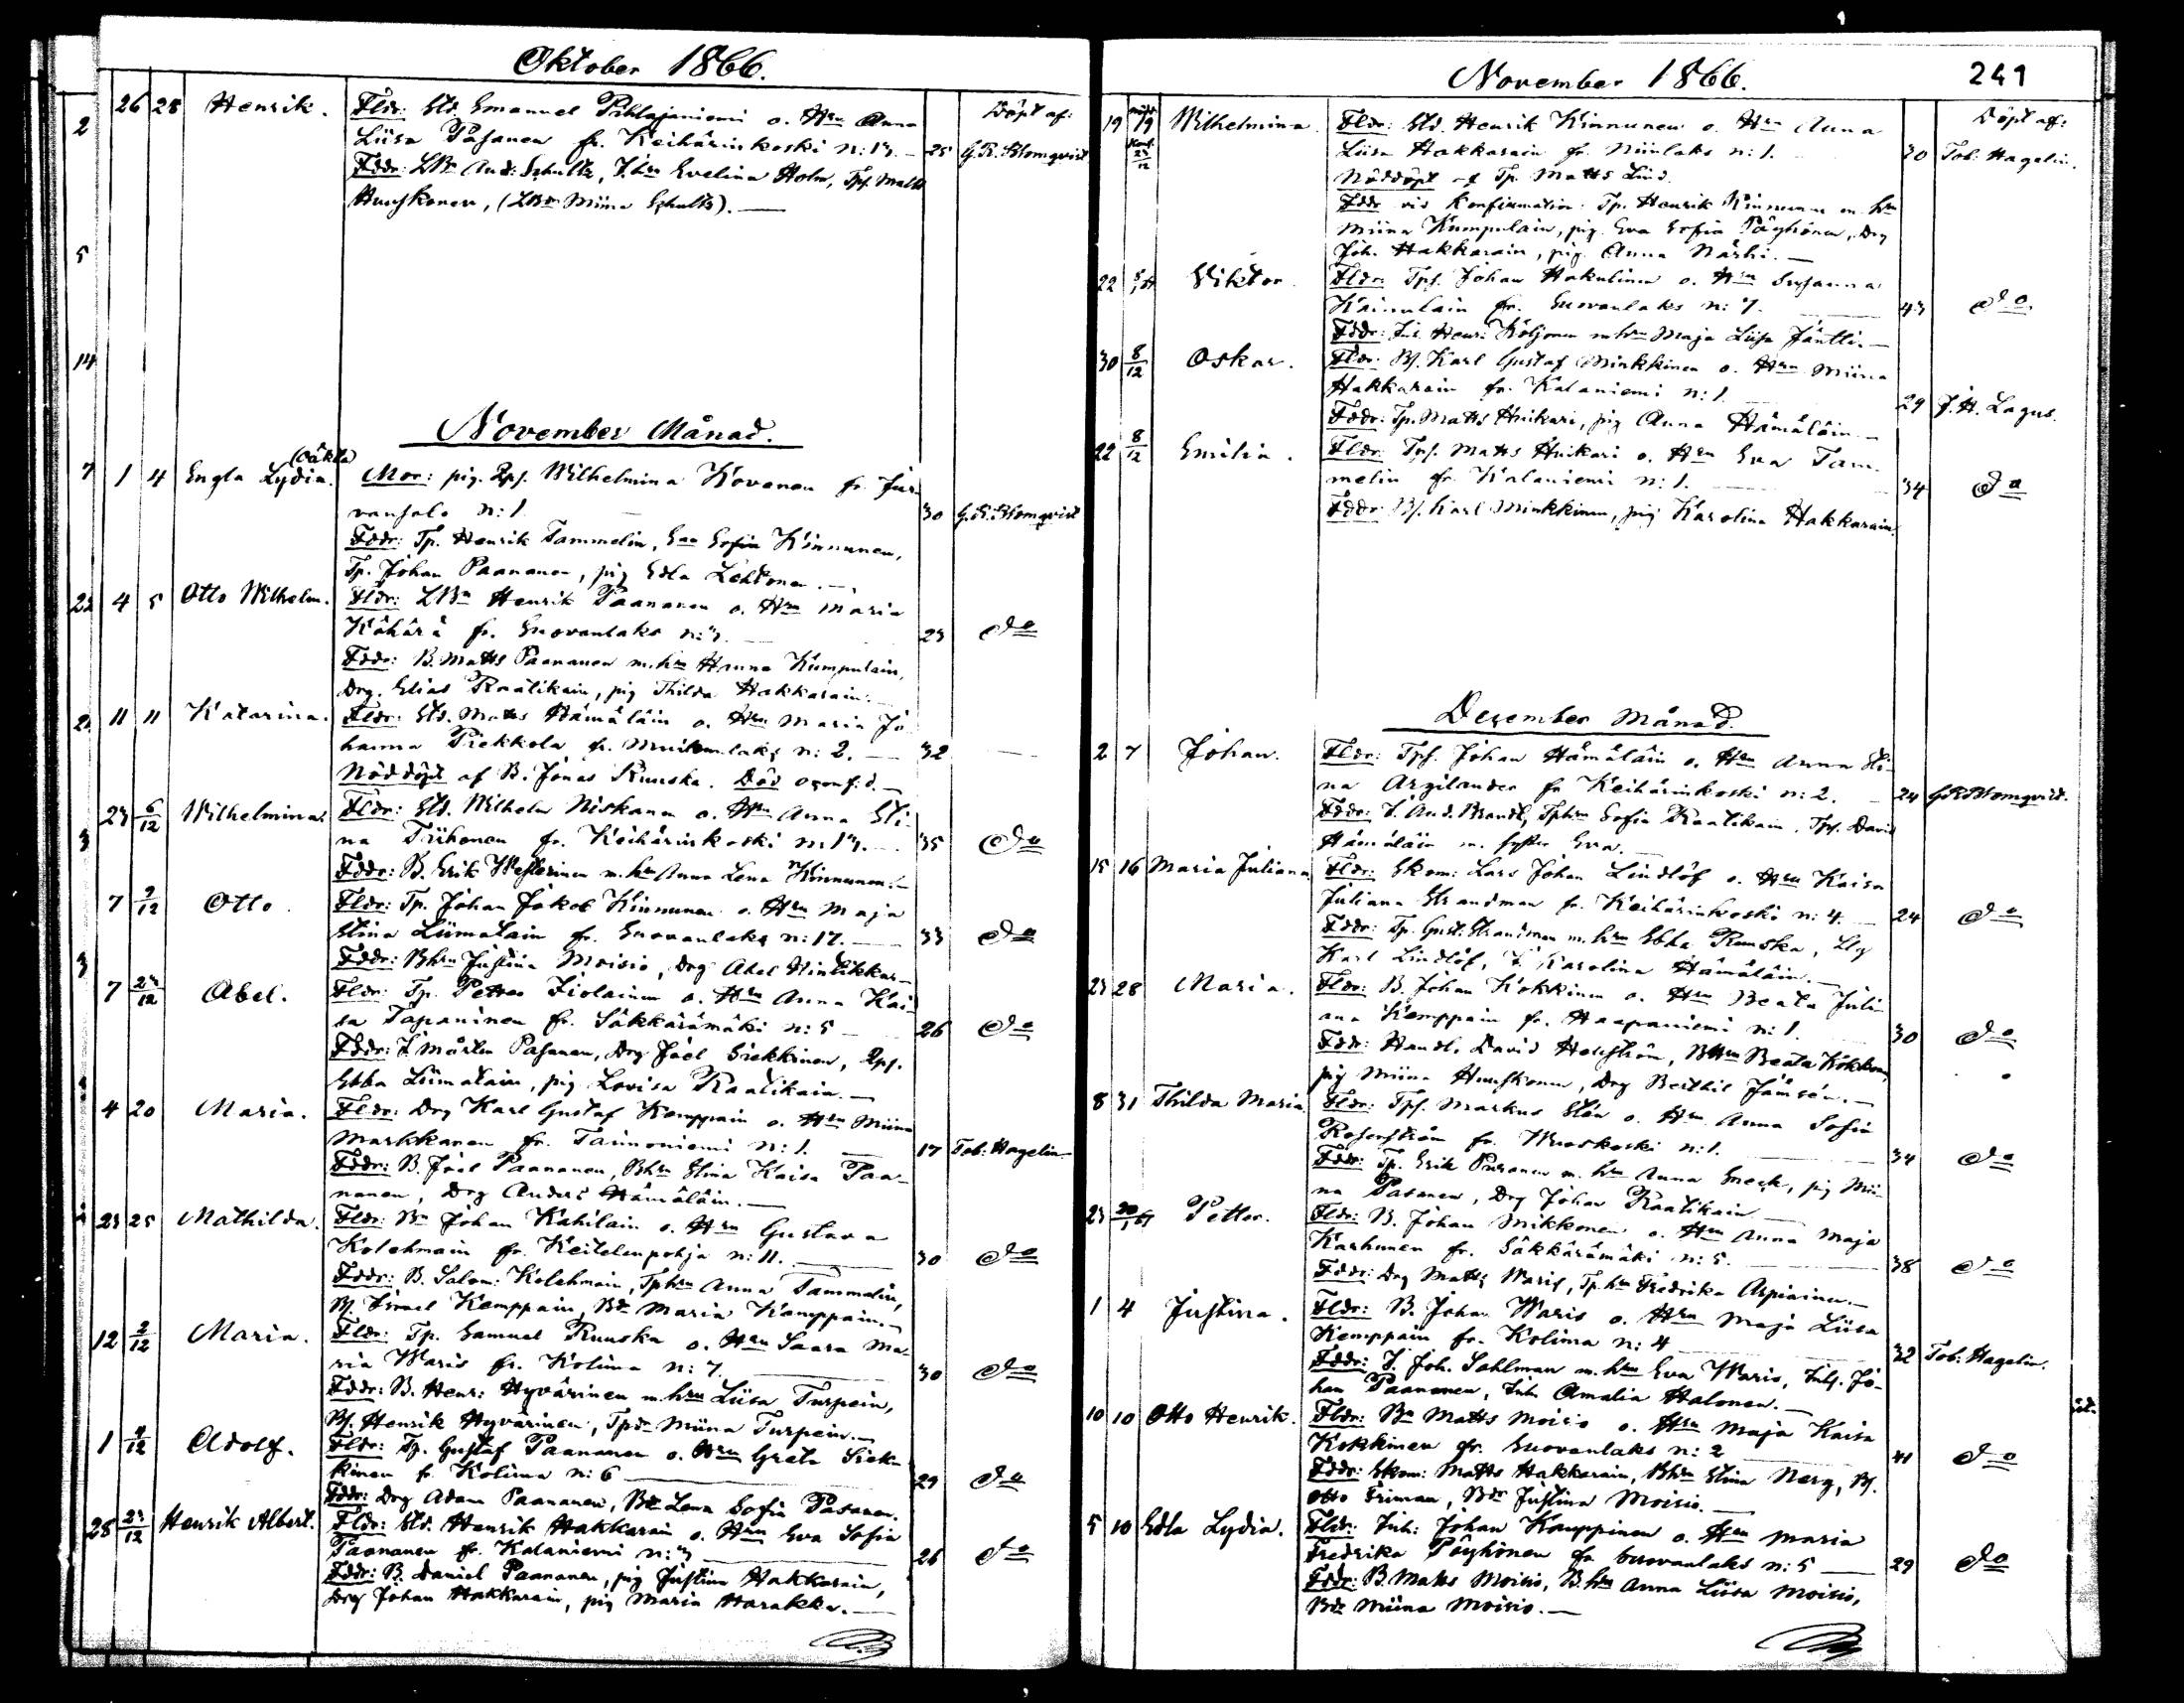 Oktober 1866.
Döpt af:
2 26 28 Henrik. Fldr: Std Emanuel Pihlajaniemi o. Hru Anna
Liisa Pasanen fr. Keihärinkoski n:13. — 25 G.R. Blomqvist
Fddr: And: Schultz, Evelina Holm, Tps. Matts
Huuskonen, (Miina Schultz). —
5
14
November Månad.
(oäkta)
7 1 4 Engla Lydia. Mor: pig. Wilhelmina Kovanen fr.
n:1. 30 G.R. Blomqvist
Fddr: Tp. Henrik Tammelin, Eva Sofia Kinnunen,
Tp. Johan Paananen, pig Edla Lehtonen. —
22 4 5 Otto Wilhelm. Fldr: Henrik Paananen o. Hru Maria
Kähärä fr. Suovanlaks 23 do
Fddr: B. Matts Paananen m. hru Hanna Kumpulain,
Drg. Elias Raatikain, pig Thilda Hakkarain. —
11 11 Katarina. Fldr: Std. Matts Hämäläin o. Hru Maria Jo-
hanna Piekkola fr. n: 2. — 32 —
Nöddöpt af B. Jonas Ruuska. Död —
23 6/12 Wilhelmina. Fldr: Std. Wilhelm Niskanen o. Hru Anna Sti-
na Tiihonen fr. Keihärinkoski n:13. — 35 do
Fddr: B. Erik Westerinen m. hru Anna Lena Kinnunen. —
7 9/12 Otto. Fldr: Tp. Johan Jakob Kinnunen o. Hru Maja
Stina Liimatain fr. Suovanlaks n:17. — 33 do
Fddr: Bhru Justina Moisio, Drg Abel Hintikka —
7 23/12 Abel. Fldr: Tp. Petter o. Hru Anna Kai-
sa Tapaninen fr. Säkkärämäki n:5 — 26 do
Fddr: Mårten Pasanen, Drg Joel Siekkinen,
Ebba Liimatain, pig Lovisa Raatikain. —
4 20 Maria. Fldr: Drg Karl Gustaf Kemppain o. Hru Miina
Markkanen fr. Taimoniemi n:1. — 17 Tob: Hagelin
Fddr: B. Joel Paananen, Bhru Stina Kaisa Paa-
nanen, Drg Anders Hämäläin. —
23 25 Mathilda. Fldr: Johan Kahilain o. Hru Gustava
Kolehmain fr. Keitelenpohja n:11. — 30 do
Fddr: B. Salom: Kolehmain, Tphru Anna Tammelin,
Bf. Israel Kemppain, Bdr Maria Kemppain. —
12 2/12 Maria. Fldr: Tp. Samuel Ruuska o. Hru Saara Ma-
ria Waris fr. Kolima n:7. — 30 do
Fddr: B. Henr: Hyvärinen m. hru Liisa Turpein,
Bf. Henrik Hyvärinen, Tpdr Miina Turpein. —
1 9/12 Adolf. Fldr: Tp. Gustaf Paananen o. Hru Greta Siek-
kinen fr. Kolima n:6 — 29 do
Fddr: Drg Adam Paananen, Bdr Lena Sofia Pasanen.
28 23/12 Henrik Albert. Fldr: Std. Henrik Hakkarain o. Hru Eva Sofia
Paananen fr. Kalaniemi n:3 — 26 do
Fddr: B. Daniel Paananen, pig Justina Hakkarain,
Drg Johan Hakkarain, pig Maria Harakka. —
November 1866. 241
Döpt af:
19 19 Wilhelmina. Fldr: Std. Henrik Kinnunen o. Hru Anna
Konf. 23/12 Liisa Hakkarain fr. Niinilaks n:1. 30 Tob: Hagelin.
Nöddöpt af Tp. Matts Lind.
Fddr vis konfirmation: Tp. Henrik Kinnunen m. hru
Miina Kumpulain, pig. Eva Sofia Pöyhönen, Drg
Joh. Hakkarain, pig. Anna Närhi. —
22 Viktor. Fldr: Tps. Johan Hakulinen o. Hru Susanna
Kainulain fr. Suovanlaks n:7. — 43 do
Fddr: Henr: m. hru Maja Liisa Jäntti. —
30 8/12 Oskar. Fldr: Bf. Karl Gustaf Minkkinen o. Hru Miina
Hakkarain fr. Kalaniemi n:1. 29 J.H. Lagus.
Fddr: Tp. Matts Huikari, pig Anna Hämäläin. —
22 8/12 Emilia. Fldr: Tps. Matts Huikari o. Hru Eva Tam-
melin fr. Kalaniemi n:1. — 34 do
Fddr: Bf. Karl Minkkinen, pig Karolina Hakkarain.
December Månad.
2 7 Johan. Fldr: Tps. Johan Hämäläin o. Hru Anna Sti-
na Argilander fr Keihärinkoski n:2. — 24 G.R. Blomqvist.
Fddr: And. Brandt, Tphru Sofia Raatikain, Tps. David
Hämäläin m. syster Eva. —
15 16 Maria Juliana. Fldr: Skom: Lars Johan Lindlöf o. Hru Kaisa
Juliana Strandman fr. Keihärinkoski n:4. — 24 do
Fddr: Tp. Gust. Strandman m. hru Ebba Ruuska,
Karl Lindlöf, Karolina Hämäläin. —
23 28 Maria. Fldr: B. Johan Kokkinen o. Hru Beata Juli-
ana Kemppain fr. Haapaniemi n:1. 30 do
Fddr: Handl. David Hellström, Bhru Beata Kokkinen,
pig Miina Huuskonen, Drg Berthil Jämsén. —
8 31 Thilda Maria. Fldr: Tps. Markus Stén o. Hru Anna Sofia
Rosenström fr. Wuoskoski n:1. — 34 do
Fddr: Tp. Erik Puranen m. hru Anna Sneck, pig Mii-
na Pasanen, Drg Johan Raatikain —
23 Petter. Fldr: B. Johan Mikkonen o. Hru Anna Maja
Karhunen fr. Säkkärämäki n:5. — 38 do
Fddr: Drg Matts Waris, Tp. hru Fredrika Arpiainen. —
1 4 Justina. Fldr: B. Johan Waris o. Hru Maja Liisa
Kemppain fr. Kolima n:4 — 32 Tob: Hagelin.
Fddr: Joh. Sahlman m. hru Eva Waris, Jo-
han Paananen, Inh. Amalia Halonen. —
10 10 Otto Henrik. Fldr: Matts Moisio o. Hru Maja Kaisa
Kokkinen fr. Suovanlaks n:2 — 41 do
Fddr: Skom: Matts Hakkarain, Bhru Stina Nerg, Bf.
Otto Friman, Bdr Justina Moisio. —
5 10 Edla Lydia. Fldr: Inh: Johan Kauppinen o. Hru Maria
Fredrika Pöyhönen fr. Suovanlaks n:5 — 29 do
Fddr: B. Matts Moisio, B. hru Anna Liisa Moisio,
Bdr Miina Moisio. —